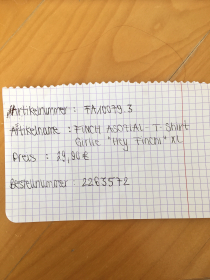 Artikelnummer : FA10079.3
Artikelname : FINCH ASOZIAL - T-Shirt
Girlie "Hey Finchi" XL
Preis : 29,90€
Bestellnummer : 2263572